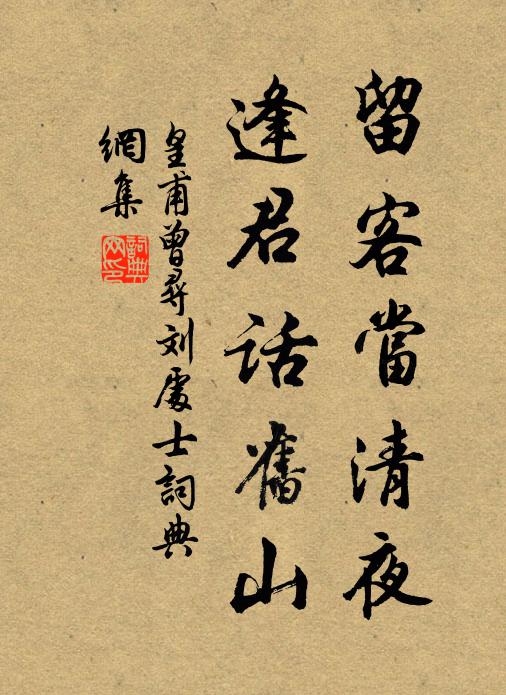 留客當清夜
逢君話舊山
皇甫曾尋刘處士詞典
網集
詞典網印